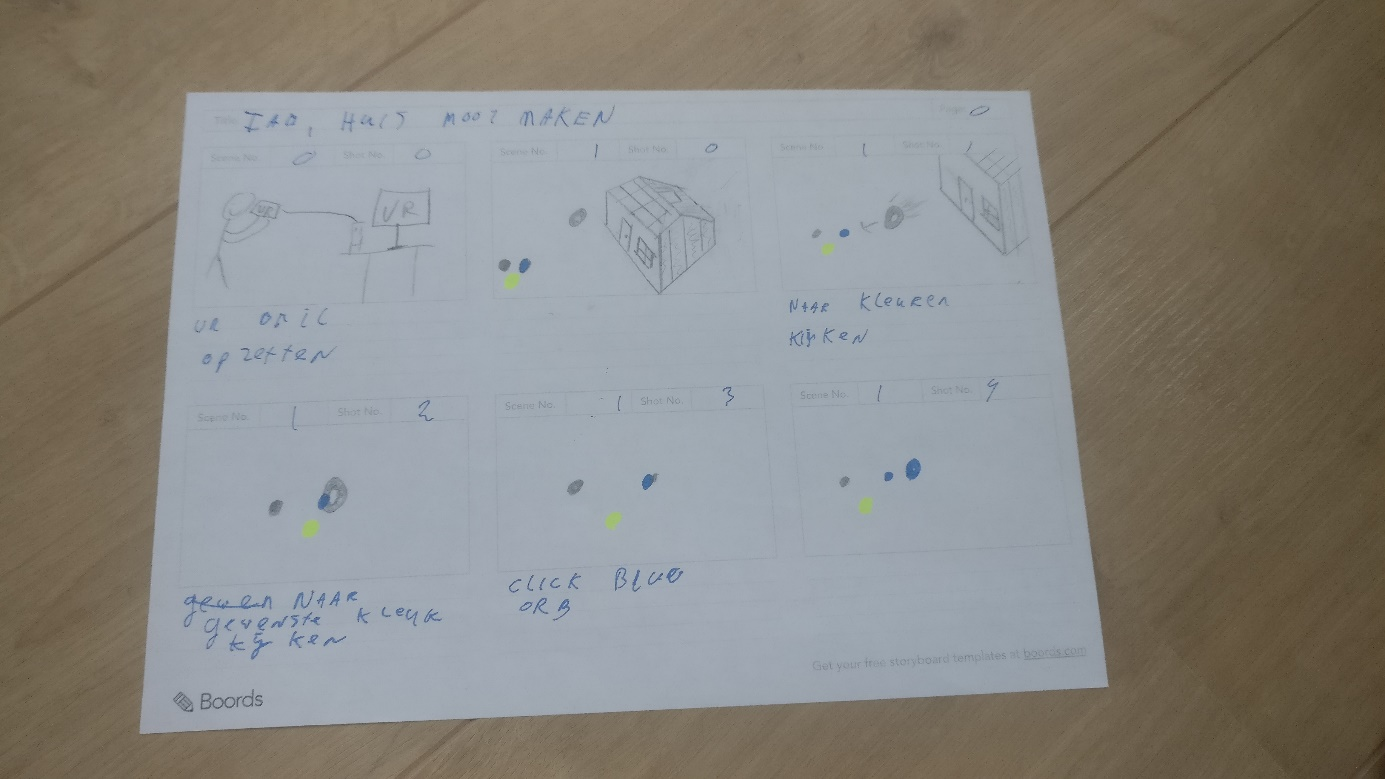 Title: IAD, HUIS MOOI MAKEN
Page: 0
Scene No. 0 Shot No. 0
VR
VR
VR BRIL
OPZETTEN
Scene No. 1 Shot No. 0
Scene No. 1 Shot No. 1
NAAR KLEUREN
KIJKEN
Scene No. 1 Shot No. 2
NAAR
gewenste kleur
kijken
Scene No. 1 Shot No. 3
CLICK BLUE
ORB
Scene No. 1 Shot No. 4
Get your free storyboard templates at boords.com
Boords